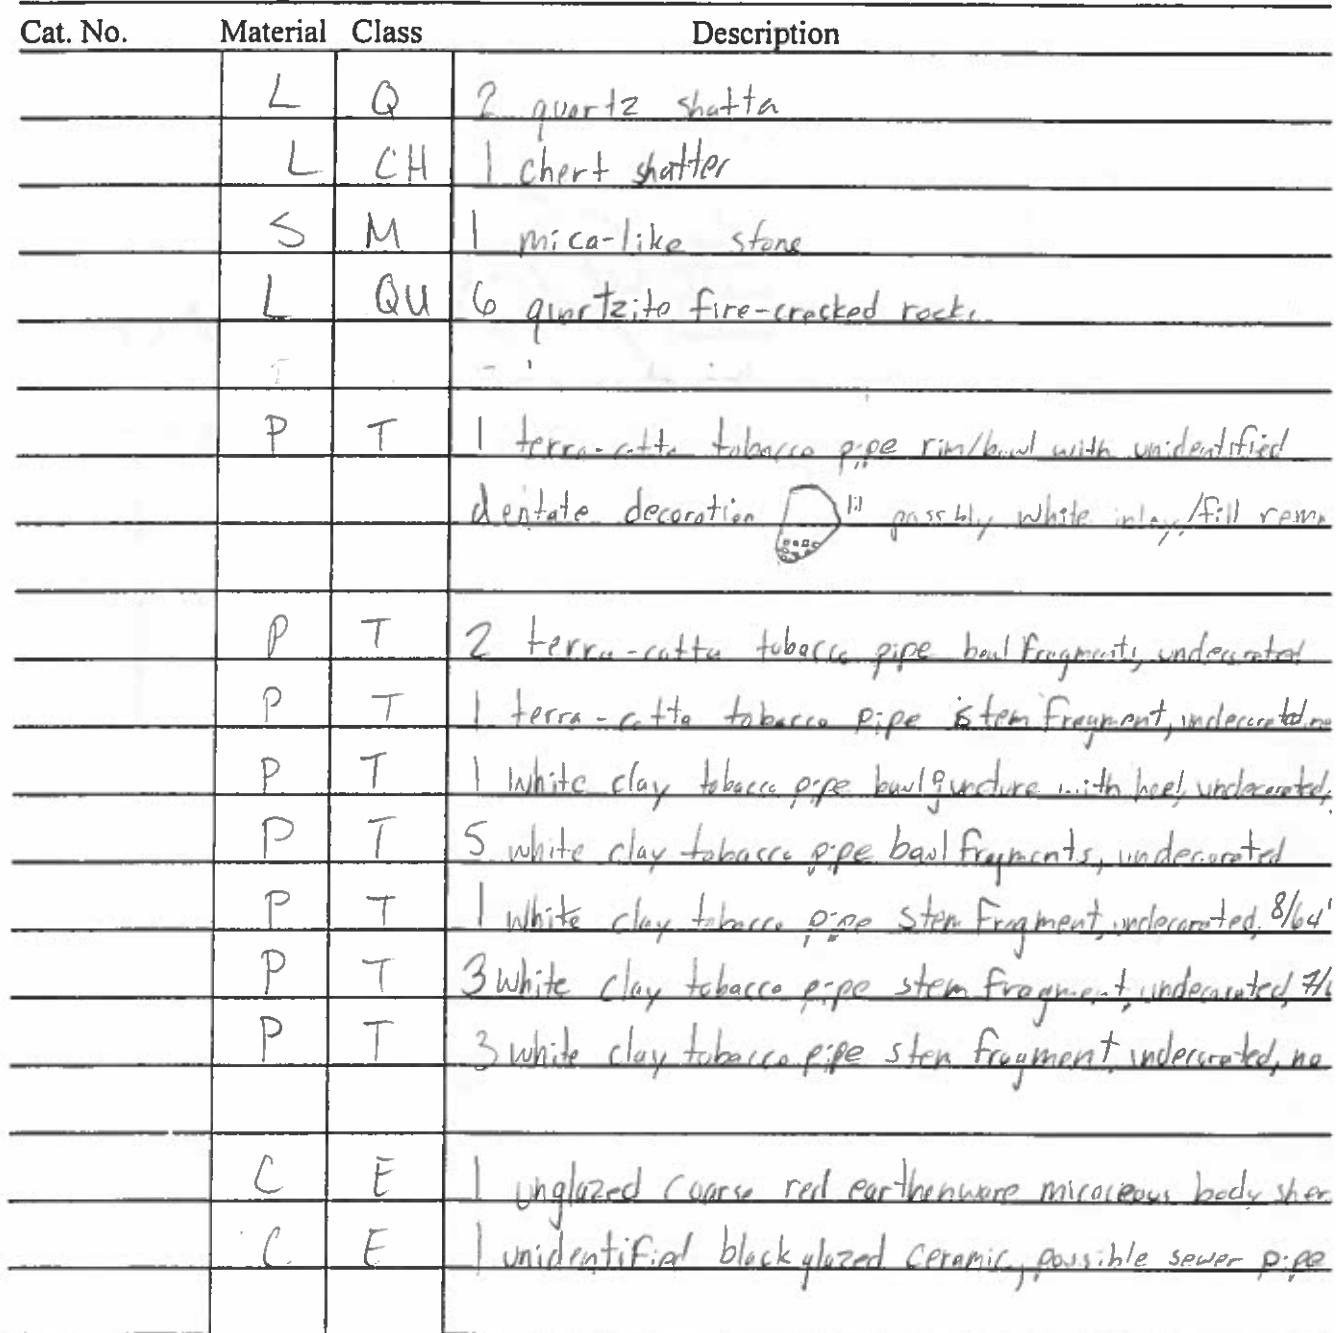 Cat. No. Material Class Description
L Q 2 quartz shatta
L CH 1 chert shatter
S M 1 mica-like stone
L QU 6 quartzite fire-cracked rocks
P T 1 terra-cotta tobacco pipe rim/bowl with unidentified
dentate decoration possbly white inlay/fill rem
P T 2 terra-cotta tobacco pipe bowl fragments, undecorated
P T 1 terra-cotta tobacco pipe stem fragment, undecorated, no
P T 1 white clay tobacco pipe bowl with heel, undecorated,
P T 5 white clay tobacco pipe bowl fragments, undecorated
P T 1 white clay tobacco pipe stem fragment, undecorated, 8/64"
P T 3 white clay tobacco pipe stem fragment, undecorated, 7/6
P T 3 white clay tobacco pipe stem fragment, undecorated, no
C E 1 unglazed coarse red earthenware micaceous body sher
C E 1 unidentified black glazed ceramic, possible sewer pipe